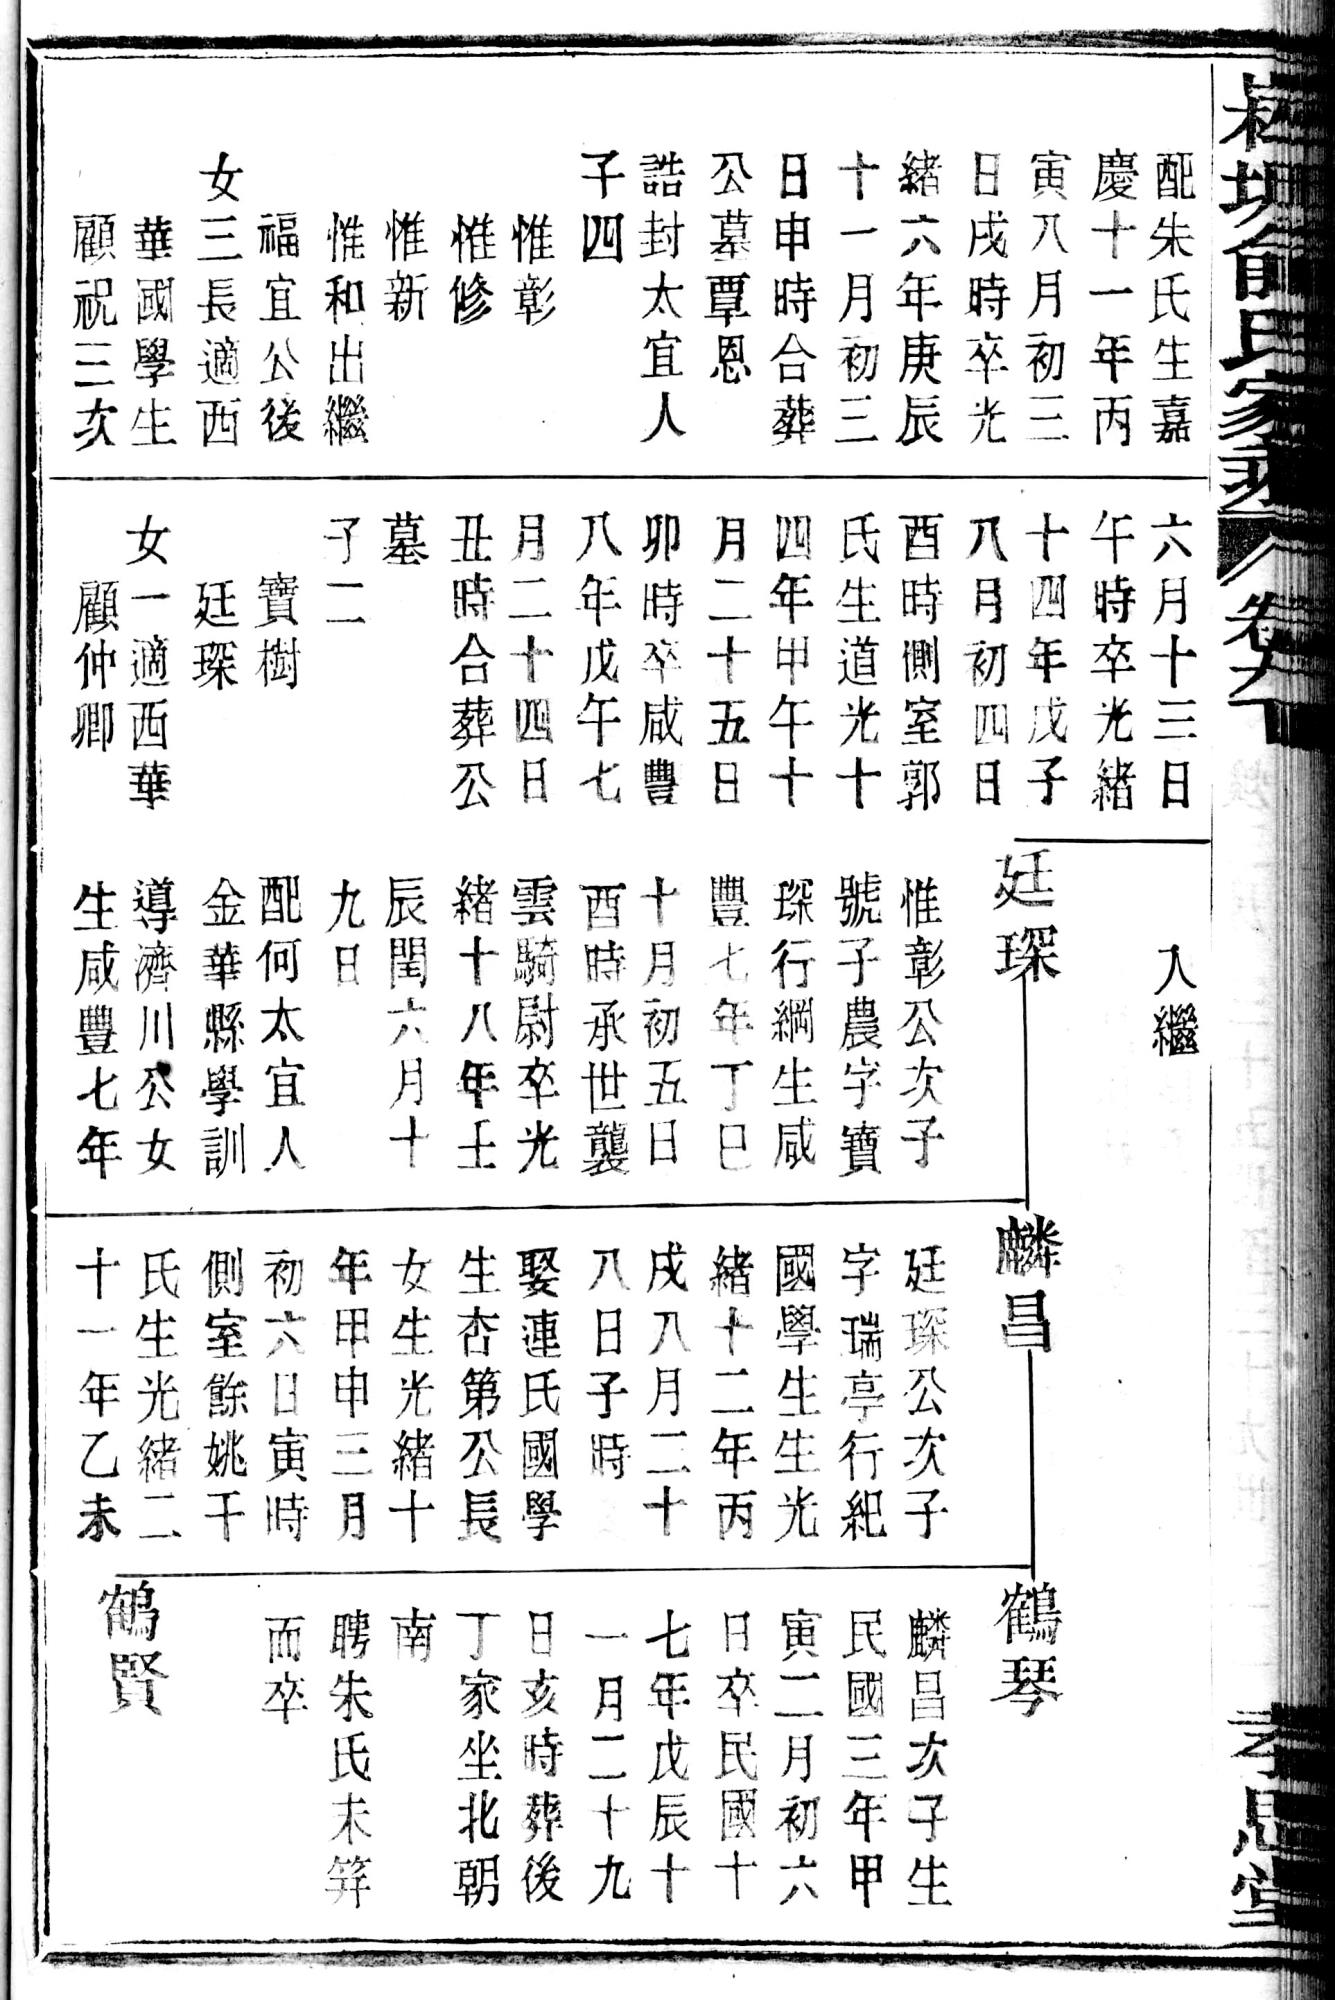 俞氏家乘
卷九下
孝思堂
配朱氏生嘉
慶十一年丙
寅八月初三
日戌時卒光
緒六年庚辰
十一月初三
日申時合葬
公墓覃恩
誥封太宜人
子四
惟彰
惟修
惟新
惟和出繼
福宜公後
女三長適西
華國學生
顧祝三次
六月十三日
午時卒光緒
十四年戊子
八月初四日
酉時側室郭
氏生道光十
四年甲午十
月二十五日
卯時卒咸豐
八年戊午七
月二十四日
丑時合葬公
墓
子二
寶樹
廷琛
女一適西華
顧仲卿
入繼
廷琛
惟彰公次子
號子農字寶
琛行綱生咸
豐七年丁巳
十月初五日
酉時承世襲
雲騎尉卒光
緒十八年壬
辰閏六月十
九日
配何太宜人
金華縣學訓
導濟川公女
生咸豐七年
麟昌
廷琛公次子
字瑞亭行紀
國學生生光
緒十二年丙
戌八月二十
八日子時
娶連氏國學
生杏第公長
女生光緒十
年甲申三月
初六日寅時
側室餘姚干
氏生光緒二
十一年乙未
鶴琴
麟昌次子生
民國三年甲
寅二月初六
日卒民國十
七年戊辰十
一月二十九
日亥時葬後
丁家坐北朝
南
聘朱氏未筓
而卒
鶴賢